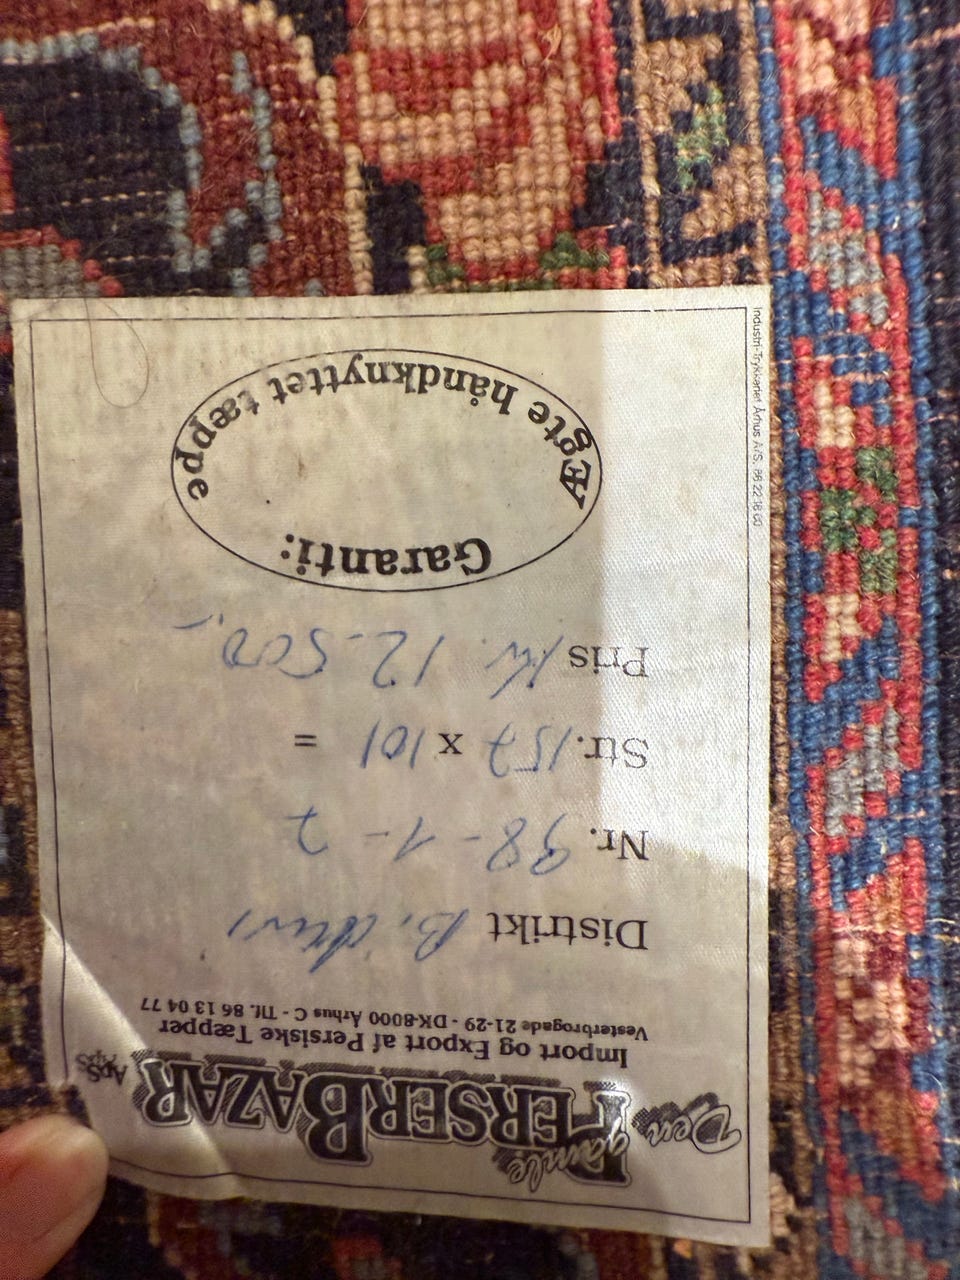 Den gamle PERSERBAZAR ApS
Import og Export af Persiske Tæpper
Vesterbrogade 21-29 - DK-8000 Århus C - Tlf. 86 13 04 77
Distrikt B.
Nr. 98-1-7
Str. 157 x 101 =
Pris kr. 12.500,-
Garanti:
Ægte håndknyttet tæppe
Industri-Trykkeriet Århus A/S. 86 22 18 00